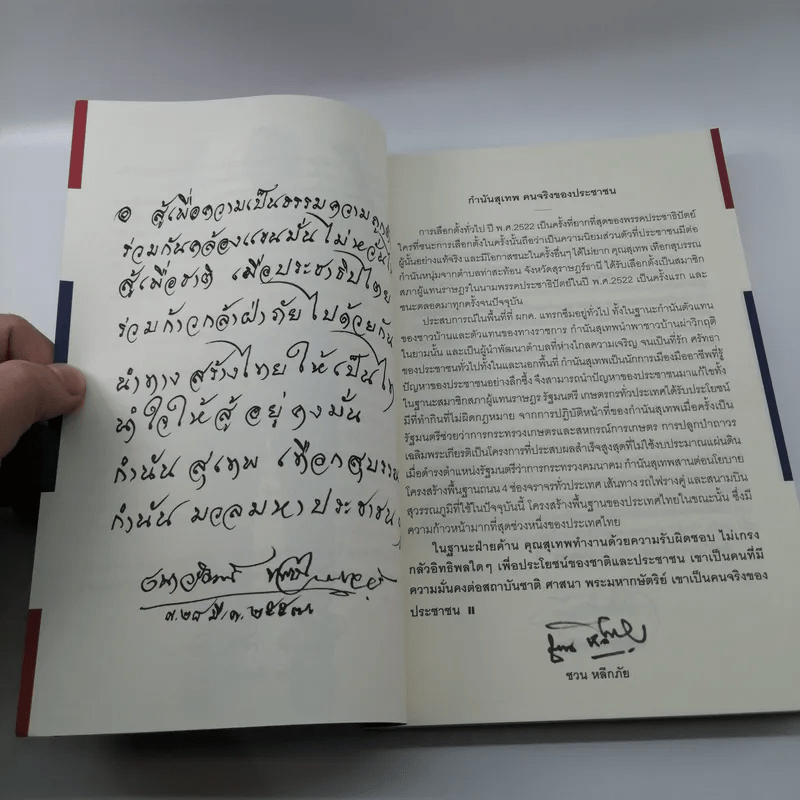 ๏ สู้เพื่อความเป็นธรรม ความถูก
ร่วมกันคล้องแขนมั่น ไม่หวั่นไ
สู้เพื่อชาติ เมื่อประชาธิปไตย
ร่วมก้าวกล้าฝ่าภัย ไปด้วยกัน
นำทาง สร้างไทย ให้เป็นไท
น้ำใจให้สู้ อยู่คงมั่น
กำนัน สุเทพ เทือกสุบรรณ
กำนัน มวลมหาประชาชน
๒๕๕๗
กำนันสุเทพ คนจริงของประชาชน
การเลือกตั้งทั่วไป ปี พ.ศ.2522 เป็นครั้งที่ยากที่สุดของพรรคประชาธิปัตย์
ใครที่ชนะการเลือกตั้งในครั้งนั้นถือว่าเป็นความนิยมส่วนตัวที่ประชาชนมีต่อ
ผู้นั้นอย่างแท้จริง และมีโอกาสชนะในครั้งอื่นๆ ได้ไม่ยาก คุณสุเทพ เทือกสุบรรณ
กำนันหนุ่มจากตำบลท่าสะท้อน จังหวัดสุราษฎร์ธานี ได้รับเลือกตั้งเป็นสมาชิก
สภาผู้แทนราษฎรในนามพรรคประชาธิปัตย์ในปี พ.ศ.2522 เป็นครั้งแรก และ
ชนะตลอดมาทุกครั้งจนปัจจุบัน
ประสบการณ์ในพื้นที่ที่ ผกค. แทรกซึมอยู่ทั่วไป ทั้งในฐานะกำนันตัวแทน
ของชาวบ้านและตัวแทนของทางราชการ กำนันสุเทพนำพาชาวบ้านผ่าวิกฤติ
ในยามนั้น และเป็นผู้นำพัฒนาตำบลที่ห่างไกลความเจริญ จนเป็นที่รัก ศรัทธา
ของประชาชนทั่วไปทั้งในและนอกพื้นที่ กำนันสุเทพเป็นนักการเมืองมืออาชีพที่รู้
ปัญหาของประชาชนอย่างลึกซึ้ง จึงสามารถนำปัญหาของประชาชนมาแก้ไขทั้ง
ในฐานะสมาชิกสภาผู้แทนราษฎร รัฐมนตรี เกษตรกรทั่วประเทศได้รับประโยชน์
มีที่ทำกินที่ไม่ผิดกฎหมาย จากการปฏิบัติหน้าที่ของกำนันสุเทพเมื่อครั้งเป็น
รัฐมนตรีช่วยว่าการกระทรวงเกษตรและสหกรณ์การเกษตร การปลูกป่าถาวร
เฉลิมพระเกียรติเป็นโครงการที่ประสบผลสำเร็จสูงสุดที่ไม่ใช้งบประมาณแผ่นดิน
เมื่อดำรงตำแหน่งรัฐมนตรีว่าการกระทรวงคมนาคม กำนันสุเทพสานต่อนโยบาย
โครงสร้างพื้นฐานถนน 4 ช่องจราจรทั่วประเทศ เส้นทาง รถไฟรางคู่ และสนามบิน
สุวรรณภูมิที่ใช้ในปัจจุบันนี้ โครงสร้างพื้นฐานของประเทศไทยในขณะนั้น ซึ่งมี
ความก้าวหน้ามากที่สุดช่วงหนึ่งของประเทศไทย
ในฐานะฝ่ายค้าน คุณสุเทพทำงานด้วยความรับผิดชอบ ไม่เกรง
กลัวอิทธิพลใดๆ เพื่อประโยชน์ของชาติและประชาชน เขาเป็นคนที่มี
ความมั่นคงต่อสถาบันชาติ ศาสนา พระมหากษัตริย์ เขาเป็นคนจริงของ
ประชาชน
ชวน หลีกภัย